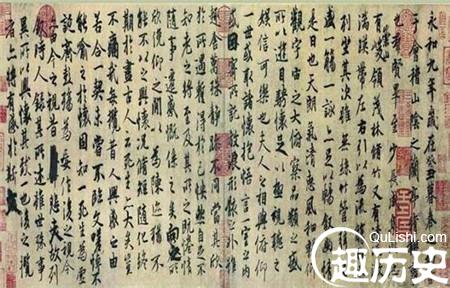 永和九年歲在癸丑暮春之初會
于會稽山陰之蘭亭脩稧事
也羣賢畢至少長咸集此地
有崇山峻領茂林脩竹又有清流激
湍暎帶左右引以為流觴曲水
列坐其次雖無絲竹管弦之
盛一觴一詠亦足以暢敘幽情
是日也天朗氣清惠風和暢仰
觀宇宙之大俯察品類之盛
所以遊目騁懷足以極視聽之
娛信可樂也夫人之相與俯仰
一世或取諸懷抱悟言一室之內
或因寄所託放浪形骸之外雖
趣舍萬殊靜躁不同當其欣
於所遇蹔得於己怏然自足不
知老之將至及其所之既惓情
隨事遷感慨係之矣向之所
欣俛仰之閒以為陳迹猶不
能不以之興懷況脩短隨化終
期於盡古人云死生亦大矣豈
不痛哉每攬昔人興感之由
若合一契未嘗不臨文嗟悼不
能喻之於懷固知一死生為虛
誕齊彭殤為妄作後之視今
亦由今之視昔悲夫故列
敘時人錄其所述雖世殊事
異所以興懷其致一也後之攬
者亦將有感於斯
QuLishi.com
趣历史